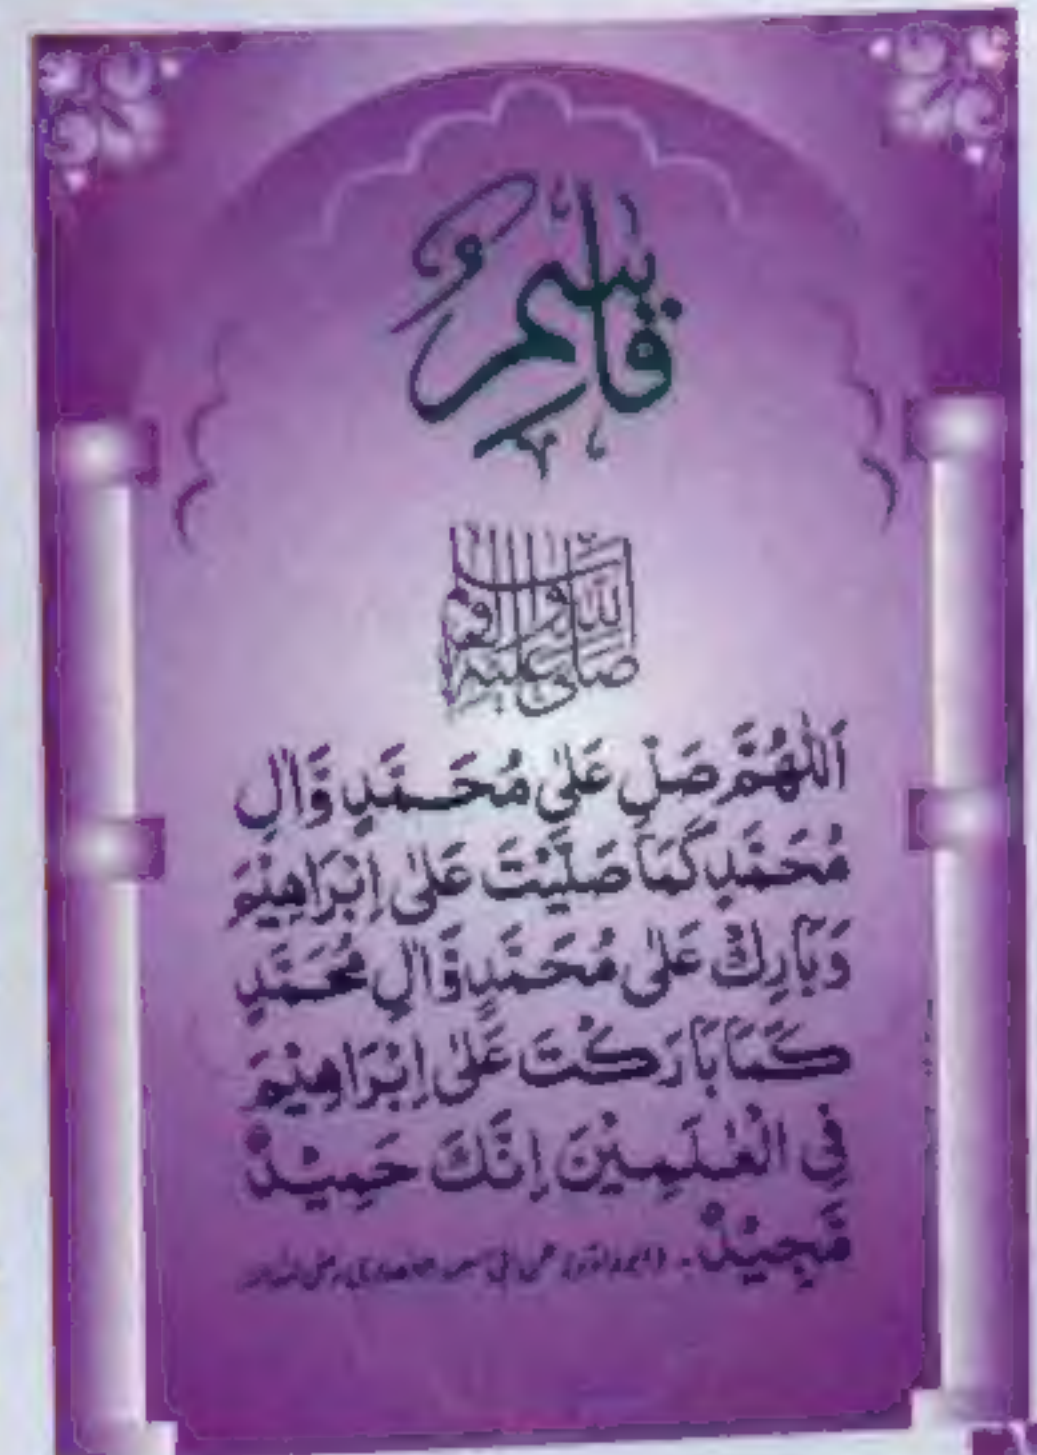 قَاسِمٌ
صلى الله عليه وآله وسلم
اَللّٰهُمَّ صَلِّ عَلٰى مُحَمَّدٍ وَّاٰلِ
مُحَمَّدٍ كَمَا صَلَّيْتَ عَلٰى اِبْرَاهِيْمَ
وَبَارِكْ عَلٰى مُحَمَّدٍ وَّاٰلِ مُحَمَّدٍ
كَمَا بَارَكْتَ عَلٰى اِبْرَاهِيْمَ
فِي الْعٰلَمِيْنَ اِنَّكَ حَمِيْدٌ
مَّجِيْدٌ۔